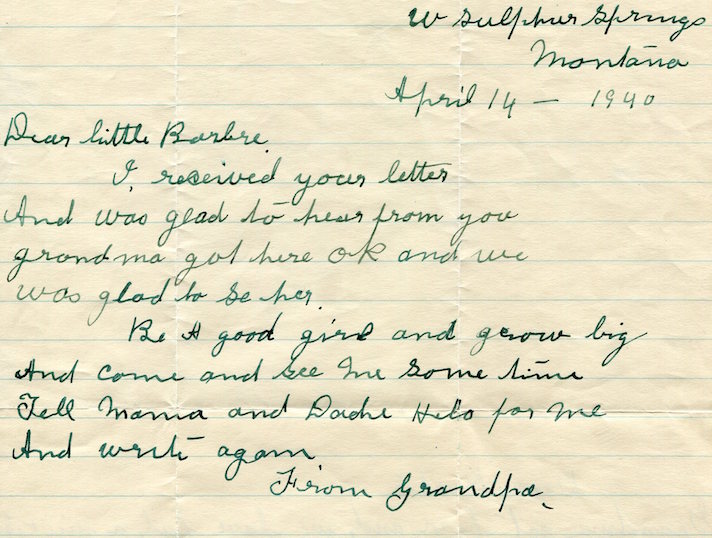 W Sulphur Springs
Montana
April 14 — 1940
Dear little Barbre.
I, received your letter
And was glad to hear from you
grandma got here OK and we
was glad to se her.
Be A good girl and grow big
And come and see me some time
Tell Mama and Dade Helo for me
And write again
From Grandpa.